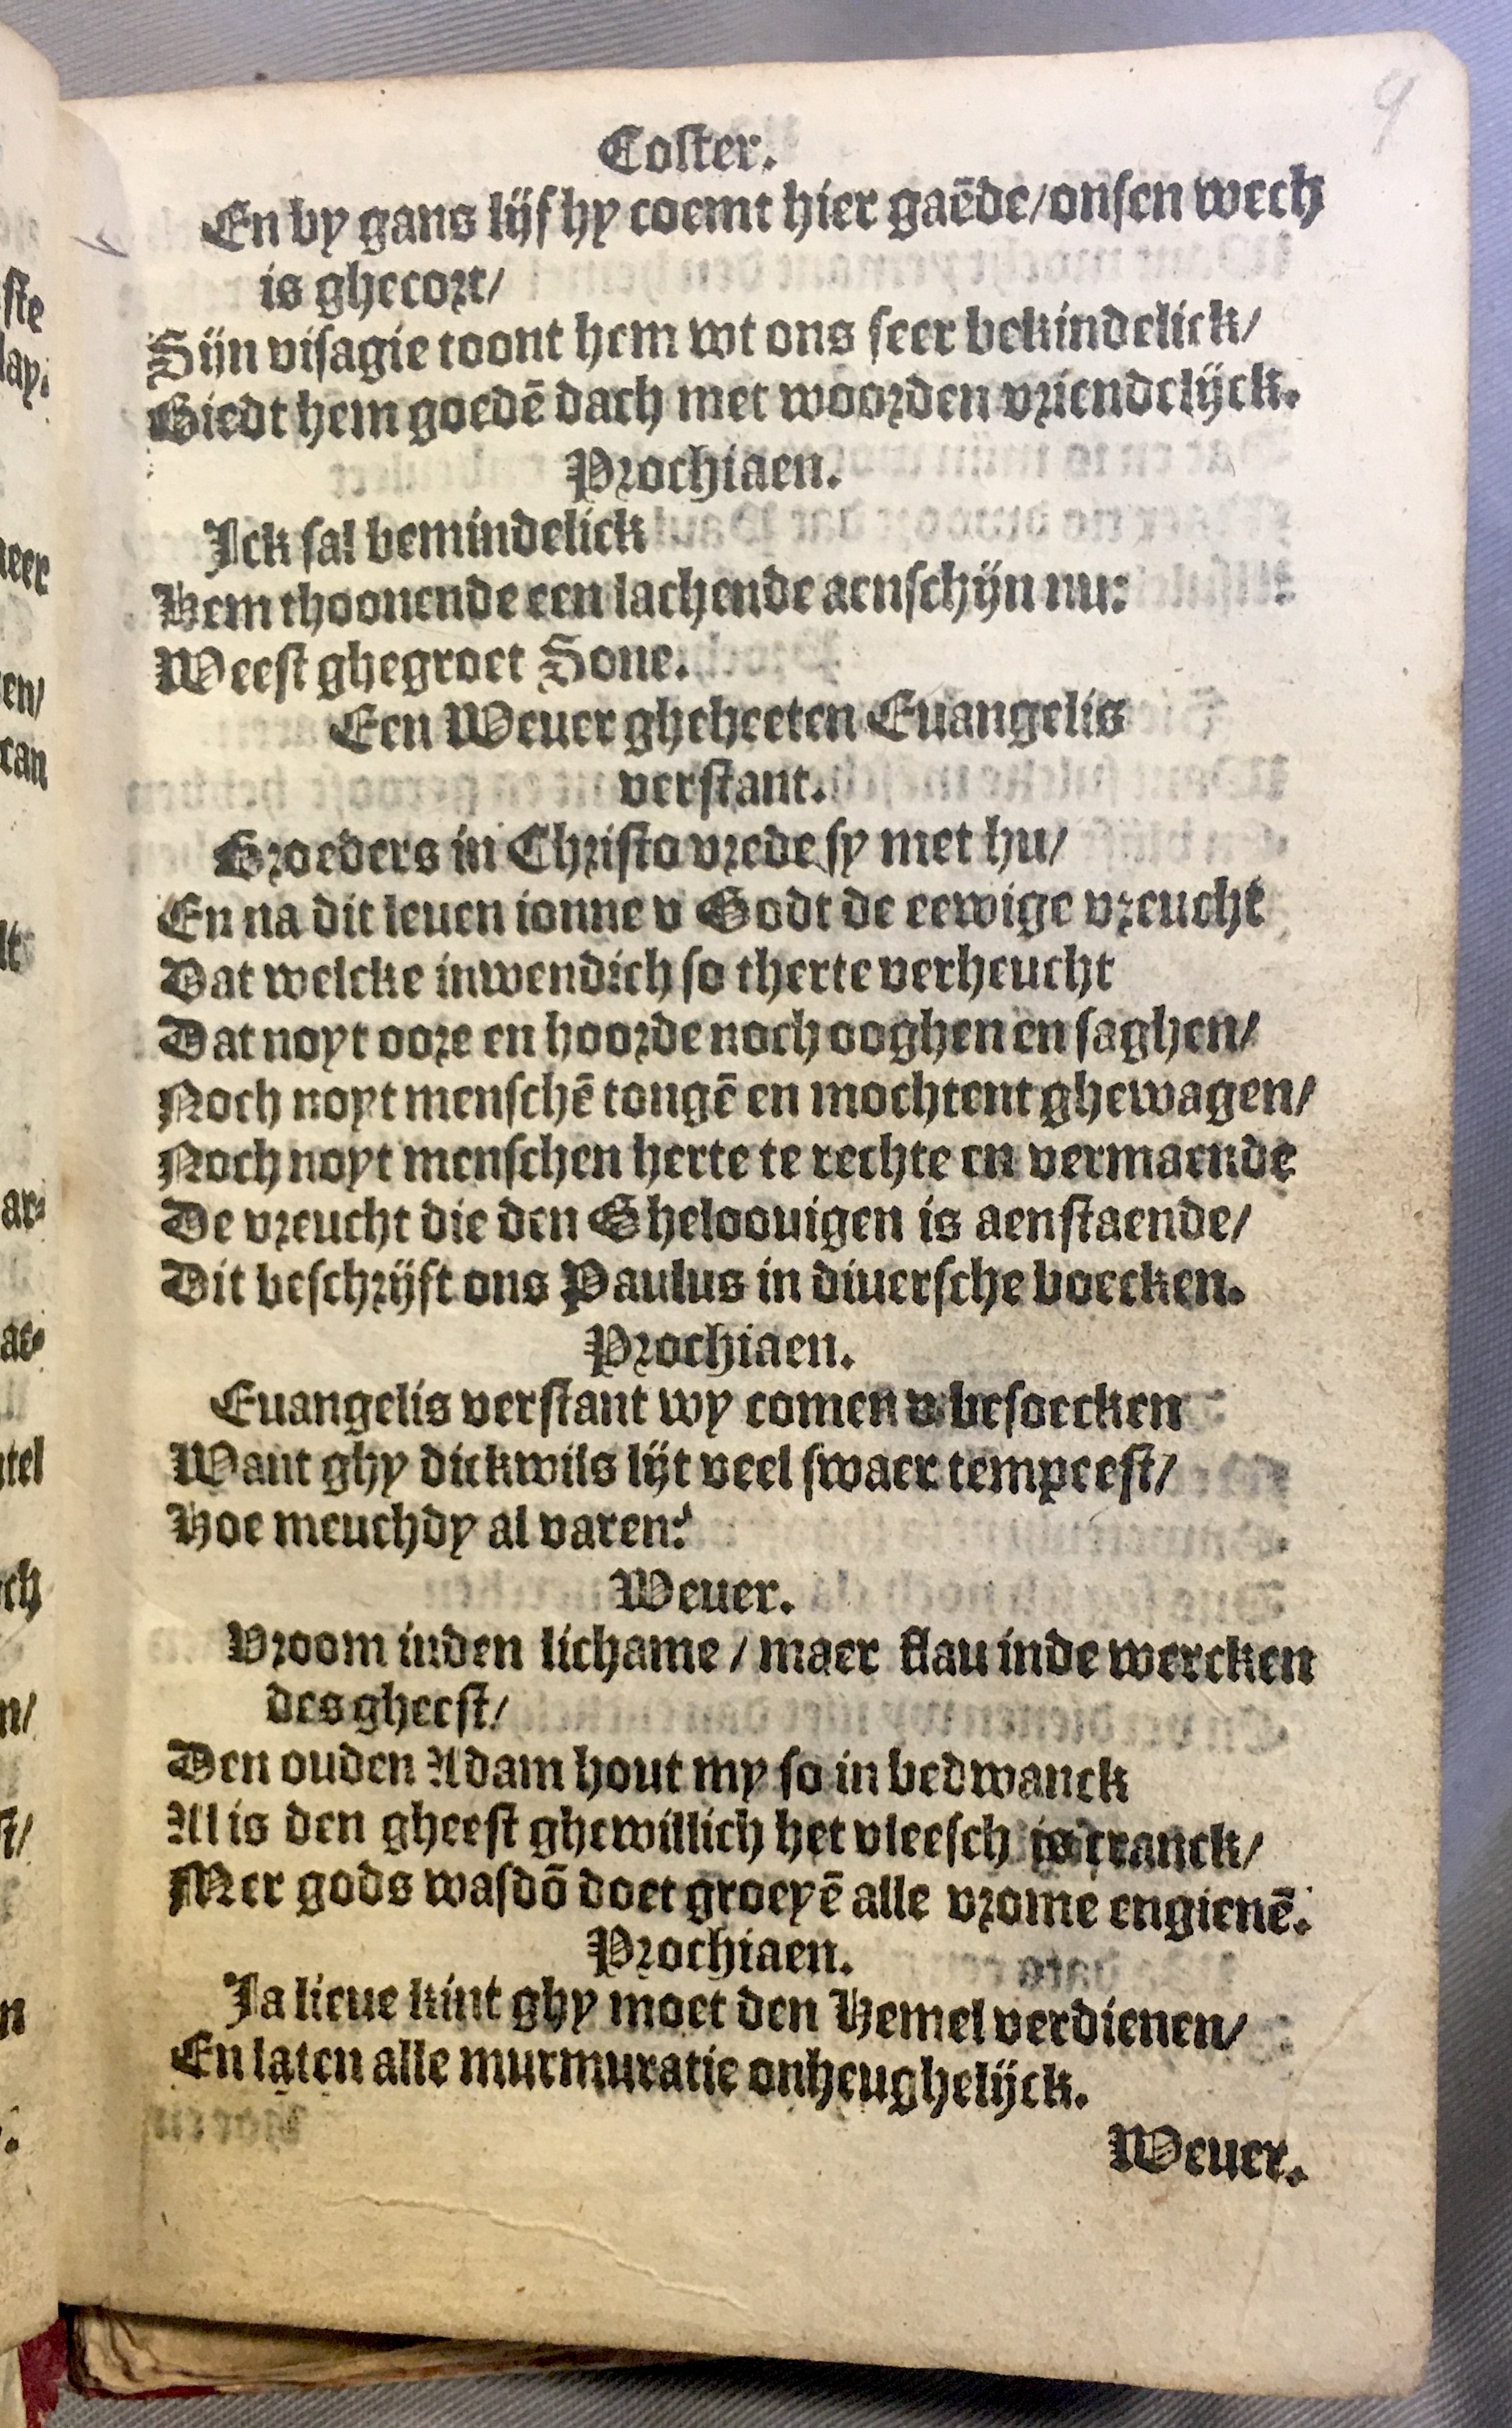 9
Coster.
En by gans lijf hy coemt hier gaēde/onsen wech
is ghecort/
Sijn visagie toont hem wt ons seer bekindelick/
Biedt hem goedē dach met woorden vriendelijck.
Prochiaen.
Ick sal bemindelick
Hem thoonende een lachende aenschijn nu:
Weest ghegroet Sone.
Een Weuer gheheeten Euangelis
verstant.
Broeders in Christo vrede sy met hu/
En na dit leuen ionne v Godt de eewige vreucht
Dat welcke inwendich so therte verheucht
Dat noyt oore en hoorde noch ooghen en saghen/
Noch noyt menschē tongē en mochtent ghewagen/
Noch noyt menschen herte te rechte en vermaende
De vreucht die den Gheloouigen is aenstaende/
Dit beschrijft ons Paulus in diuersche boecken.
Prochiaen.
Euangelis verstant wy comen v besoecken
Want ghy dickwils lijt veel swaer tempeest/
Hoe meuchdy al varen?
Weuer.
Vroom inden lichame / maer flau inde wercken
des gheest/
Den ouden Adam hout my so in bedwanck
Al is den gheest ghewillich het vleesch is cranck/
Mer gods wasdō doet groeyē alle vrome engienē.
Prochiaen.
Ja lieue kint ghy moet den Hemel verdienen/
En laten alle murmuratie onheughelijck.
Weuer.